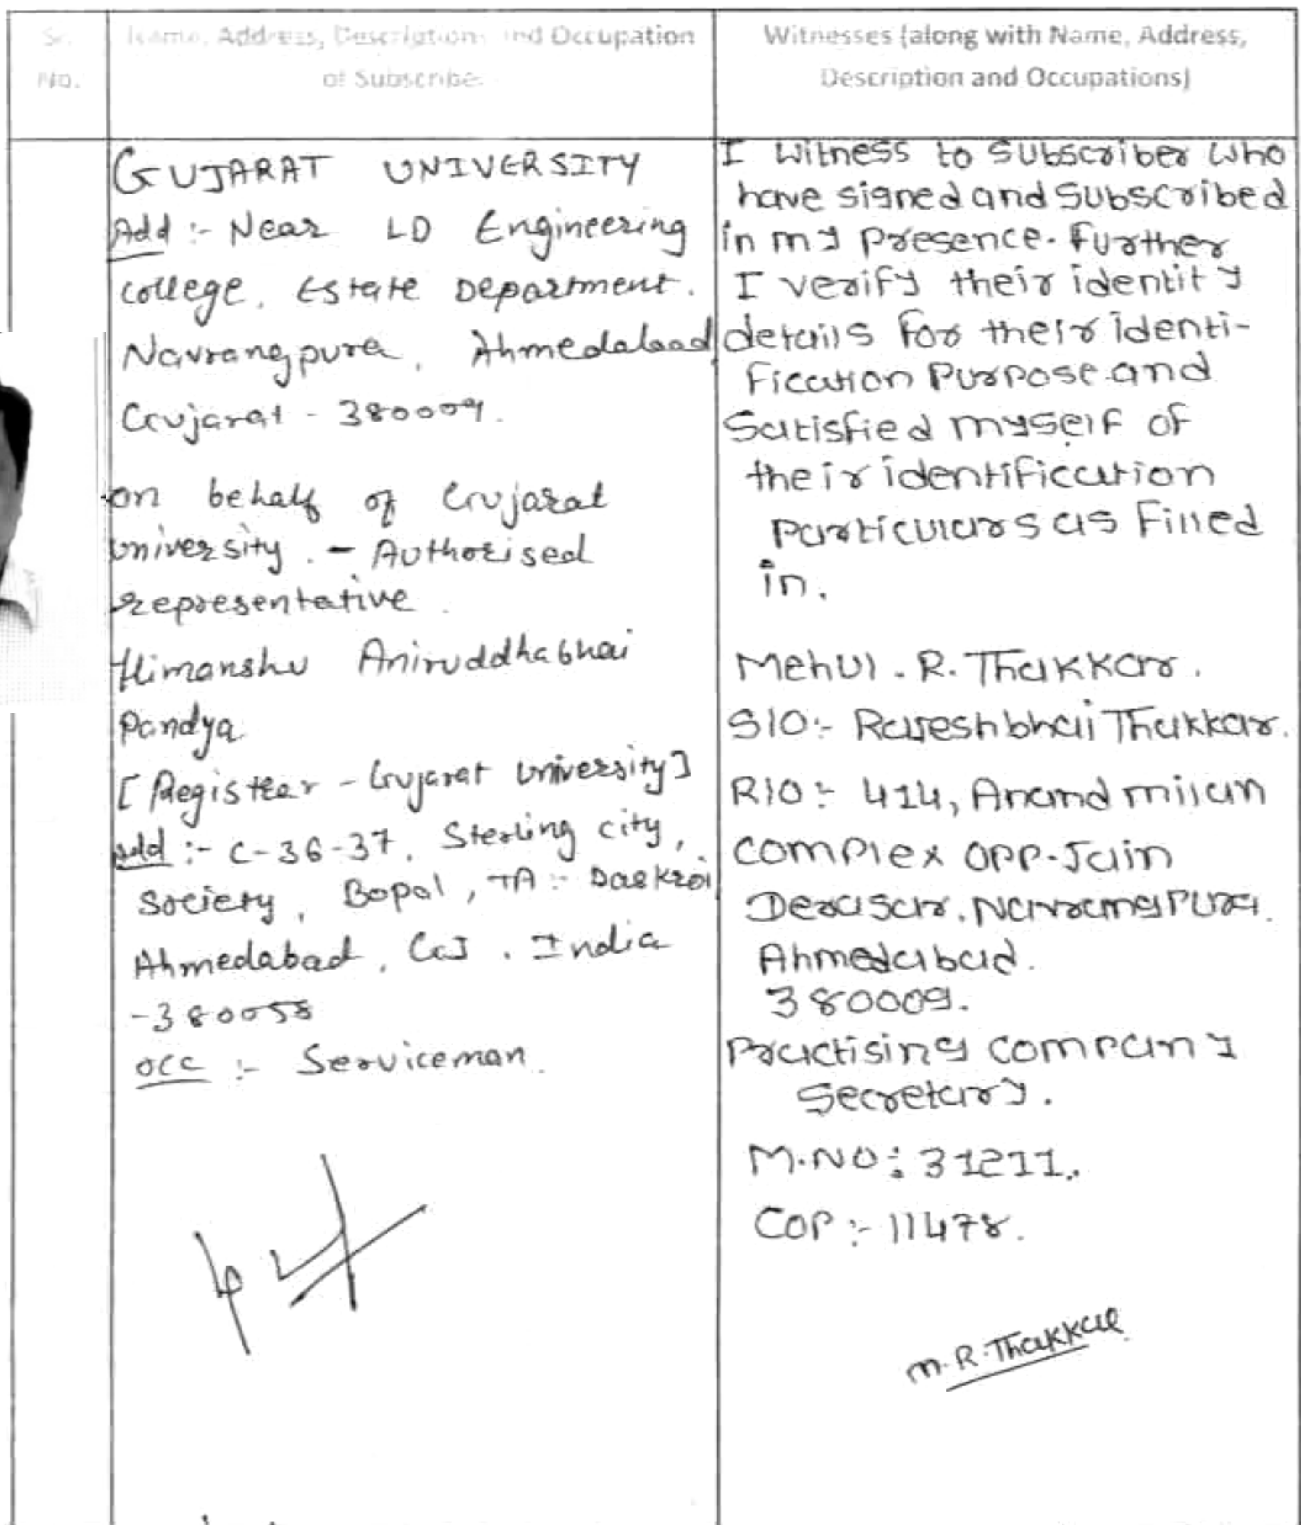 Sr. No.
Name, Address, Description and Occupation
of Subscriber
Witnesses (along with Name, Address,
Description and Occupations)
GUJARAT UNIVERSITY
Add :- Near LD Engineering
college, Estate Department.
Navrangpura, Ahmedabad
Gujarat - 380009.
on behalf of Gujarat
University. - Authorised
representative.
Himanshu Aniruddhabhai
Pandya
[Registrar - Gujarat University]
Add :- C-36-37, Sterling city,
Society, Bopal, TA :- Daskroi
Ahmedabad, GJ. India
-380058
OCC :- Serviceman.
I witness to Subscriber who
have signed and Subscribed
in my presence. Further
I verify their identity
details for their identi-
fication Purpose and
Satisfied myself of
their identification
Particulars as Filled
in.
Mehul . R. Thakkar.
S/O:- Rajeshbhai Thakkar.
R/O:- 414, Anand milan
Complex OPP-Jain
Derasar, Navrangpura.
Ahmedabad.
380009.
Practising Company
Secretary.
M.NO: 31211.
COP :- 11478.
M. R. Thakkar